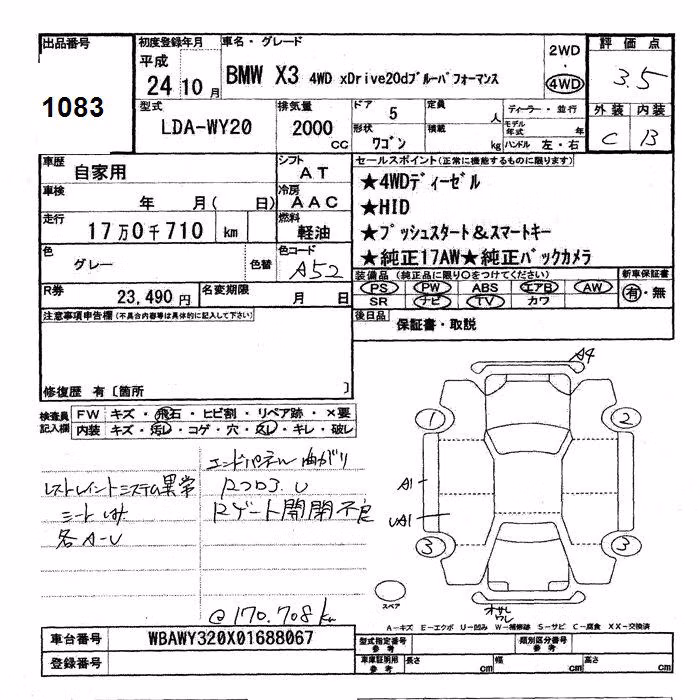 出品番号
1083
初度登録年月
平成
24 10 月
車名・グレード
BMW X3 4WD xDrive20dブルーパフォーマンス
2WD
・
4WD
評価点
3.5
型式
LDA-WY20
排気量
2000
CC
ドア 5
形状
ワゴン
定員 人
積載 kg
ディーラー・並行
モデル年式 年
ハンドル 左・右
外装 内装
C B
車歴
自家用
シフト
AT
車検
年 月( 日)
冷房
AAC
走行
17万0千710 km
燃料
軽油
色
グレー
色替
色コード
A52
R券
23,490円
名変期限
月 日
セールスポイント(正常に機能するものに限ります)
★4WDディーゼル
★HID
★プッシュスタート&スマートキー
★純正17AW★純正バックカメラ
装備品(純正品に限り○をつけてください)
新車保証書
PS PW ABS エアB AW
SR ナビ TV カワ
有・無
後日品
保証書・取説
注意事項申告欄(不具合内容等は具体的に記入して下さい)
修復歴 有〔箇所 〕
検査員
記入欄
FW キズ・飛石・ヒビ割・リペア跡・×要
内装 キズ・汚レ・コゲ・穴・スレ・キレ・破レ
エンドパネル曲がり
レストレイントシステム異常
Rフロア.U
シート
Rゲート開閉不良
各A-U
@170.708km
A4
1
2
A1
UA1
3
3
スペア
A-キズ E-エクボ U-凹み W-補修跡 S-サビ C-腐食 XX-交換済
車台番号
WBAWY320X01688067
登録番号
型式指定番号
参考
類別区分番号
参考
車庫証明用
参考
長さ cm
幅 cm
高さ cm